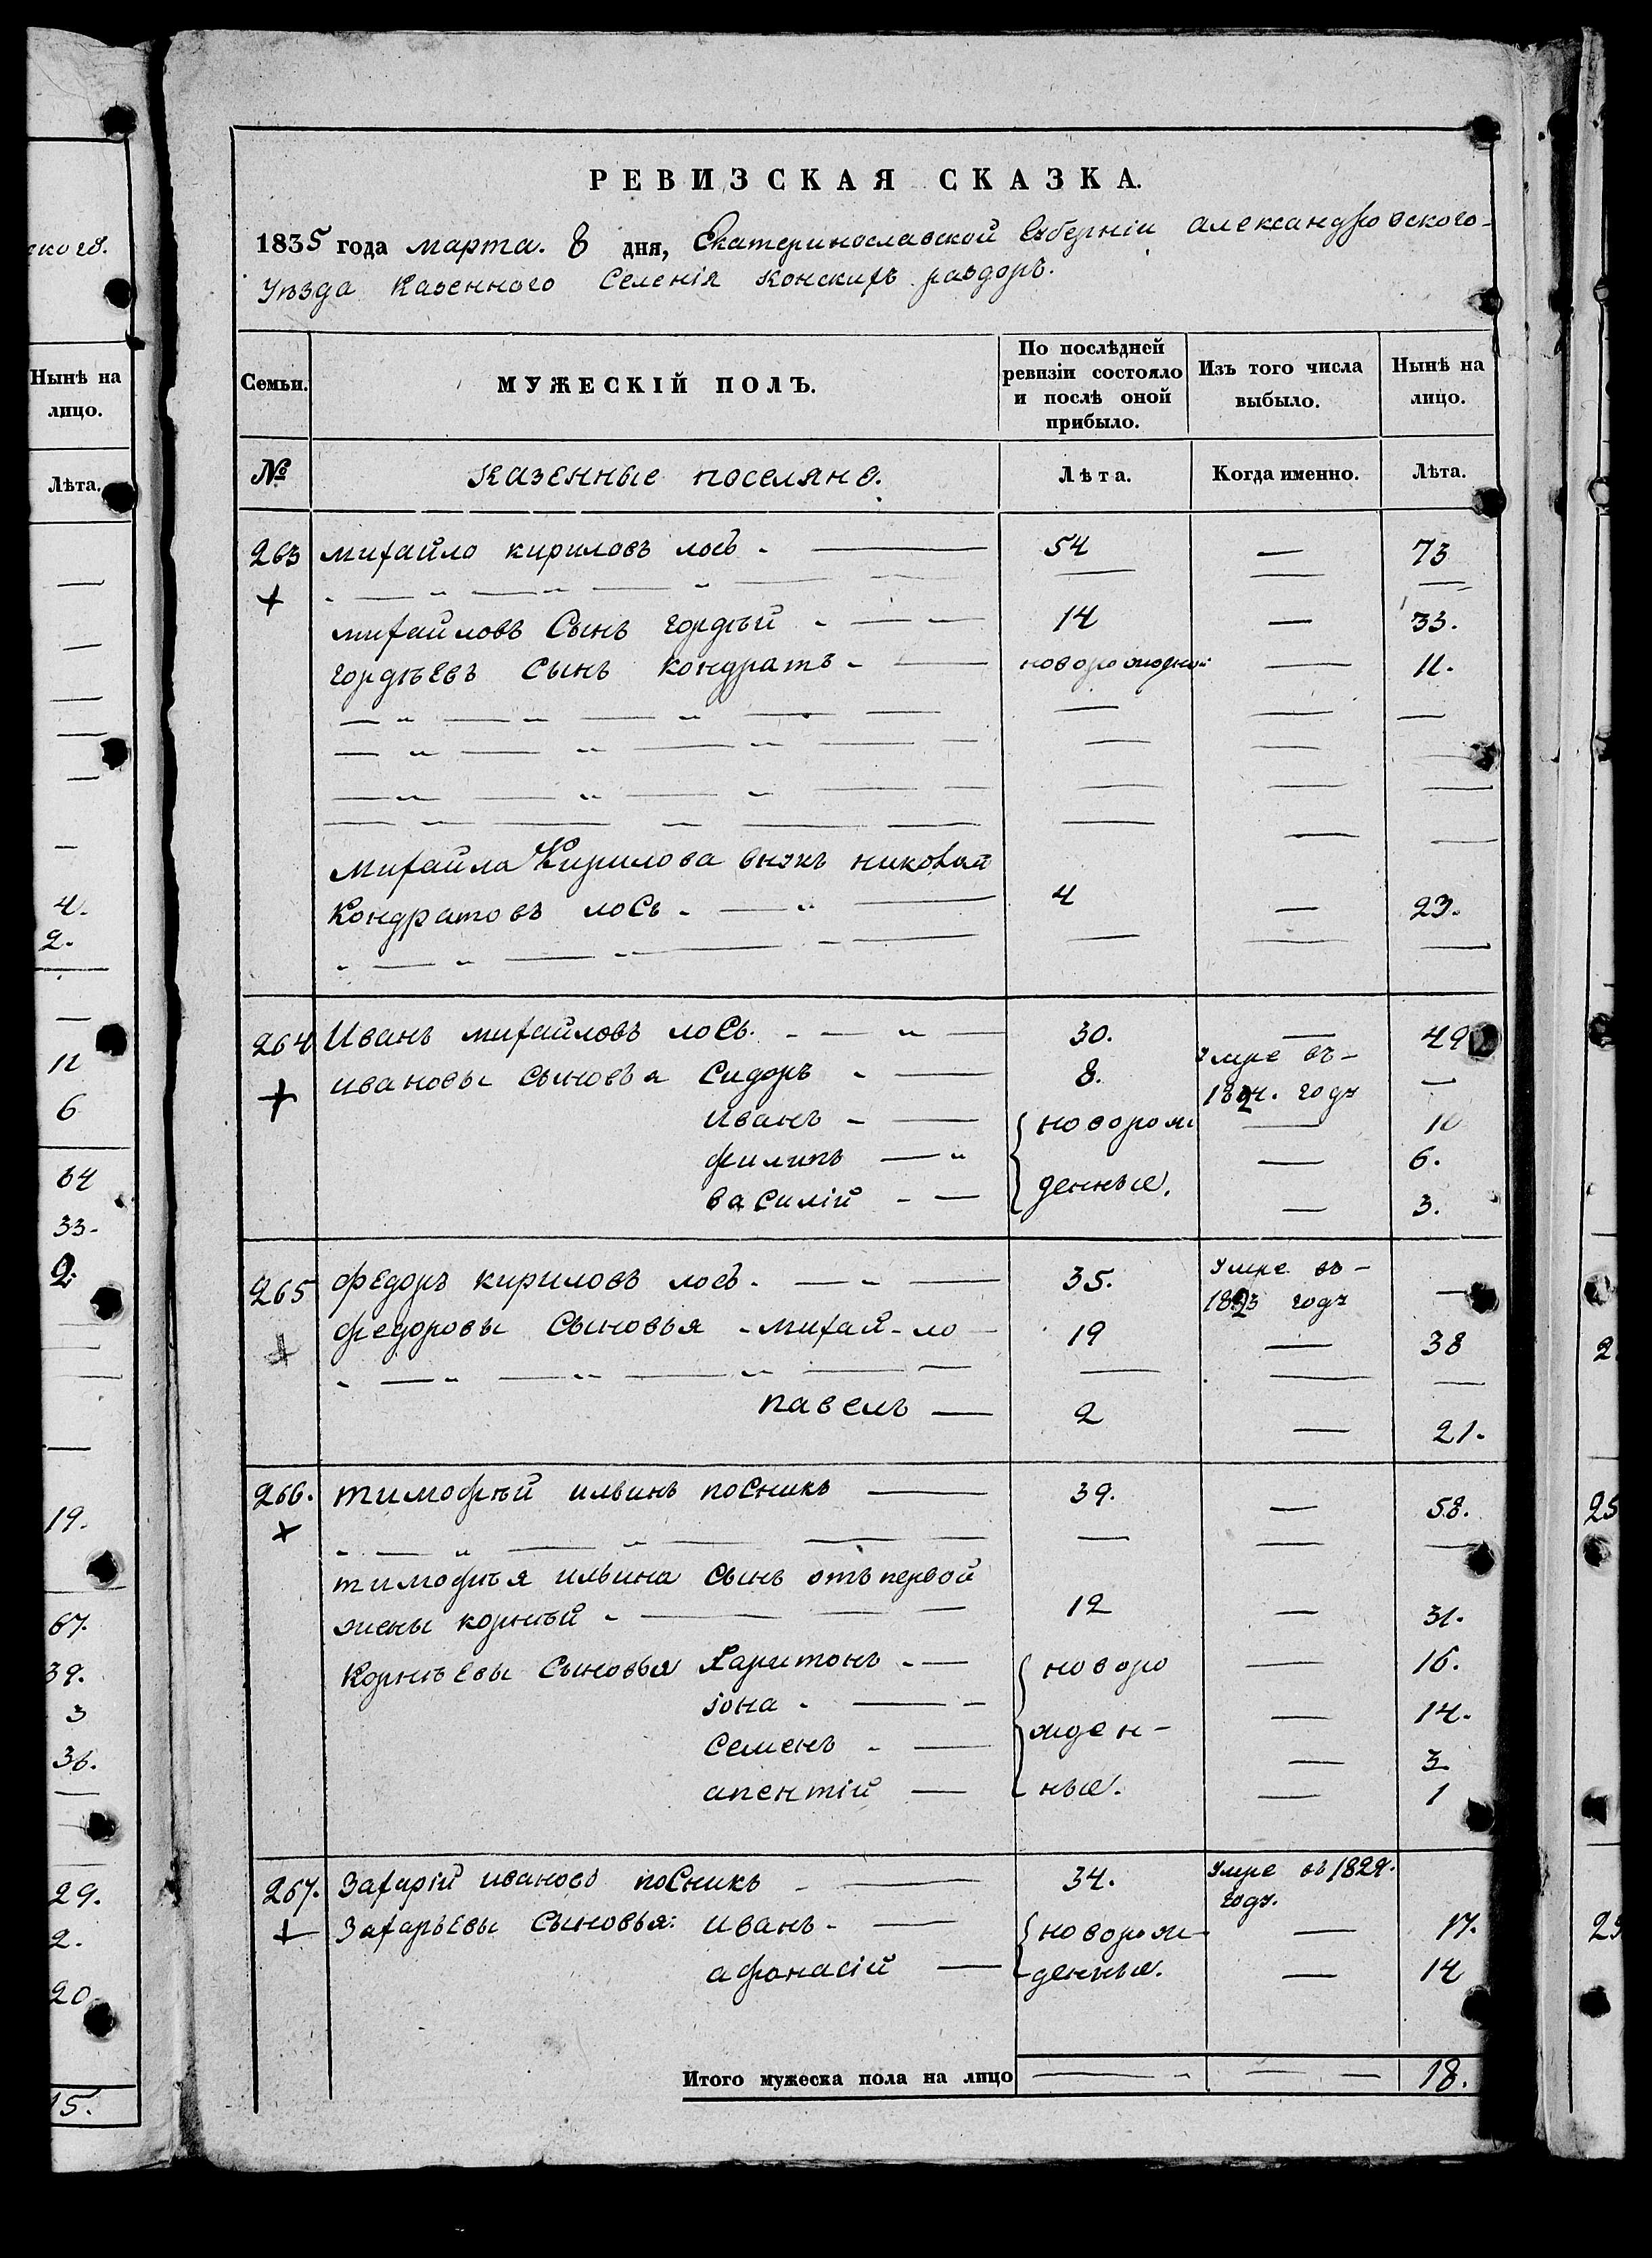 РЕВИЗСКАЯ СКАЗКА.
1835 года марта. 8 дня, Екатеринославской Губерніи александровского-
Уѣзда Казенного Селенія Конскихъ раздоръ.
Семьи. МУЖЕСКІЙ ПОЛЪ. По послѣдней ревизіи состояло и послѣ оной прибыло. Изъ того числа выбыло. Нынѣ на лицо.
№ казенные поселяне. Лѣта. Когда именно. Лѣта.
263 михайло кириловъ лось - 54 — 73
михайловъ Сынъ гордѣй - 14 — 33.
гордѣевъ Сынъ кондратъ - новорожденой — 11.
Михайла Кирилова внукъ николай
Кондратовъ лось - 4 — 23.
264 Иванъ михайловъ лось. - 30. — 49
ивановы сыновья Сидоръ - 8. Умре въ- 1824. году —
иванъ - новорож — 10
филипъ — 6.
василій - денные. — 3.
265 федоръ кириловъ лось. - 35. Умре въ- 1823 году —
федоровы Сыновья - михай-ло 19 — 38
павелъ — 2 — 21.
266. тимофѣй ильинъ посникъ 39. — 58.
тимофѣя ильина Сынъ отъ первой
жены корнѣй - 12 — 31.
Корнѣевы Сыновья Харитонъ - новоро — 16.
іона - — 14.
Семенъ - жден- — 3
апентій — ные. — 1
267. Захарій ивановъ посникъ - 34. Умре въ 1829. году.
Захарьевы Сыновья: иванъ - новорож- — 17.
афонасій — денные. — 14
Итого мужеска пола на лицо — — 18.
ского.
Нынѣ на
лицо.
Лѣта.
4.
2.
11
6
64
33-
2.
19.
67.
39.
3
36.
29.
2.
20
15.
2
25